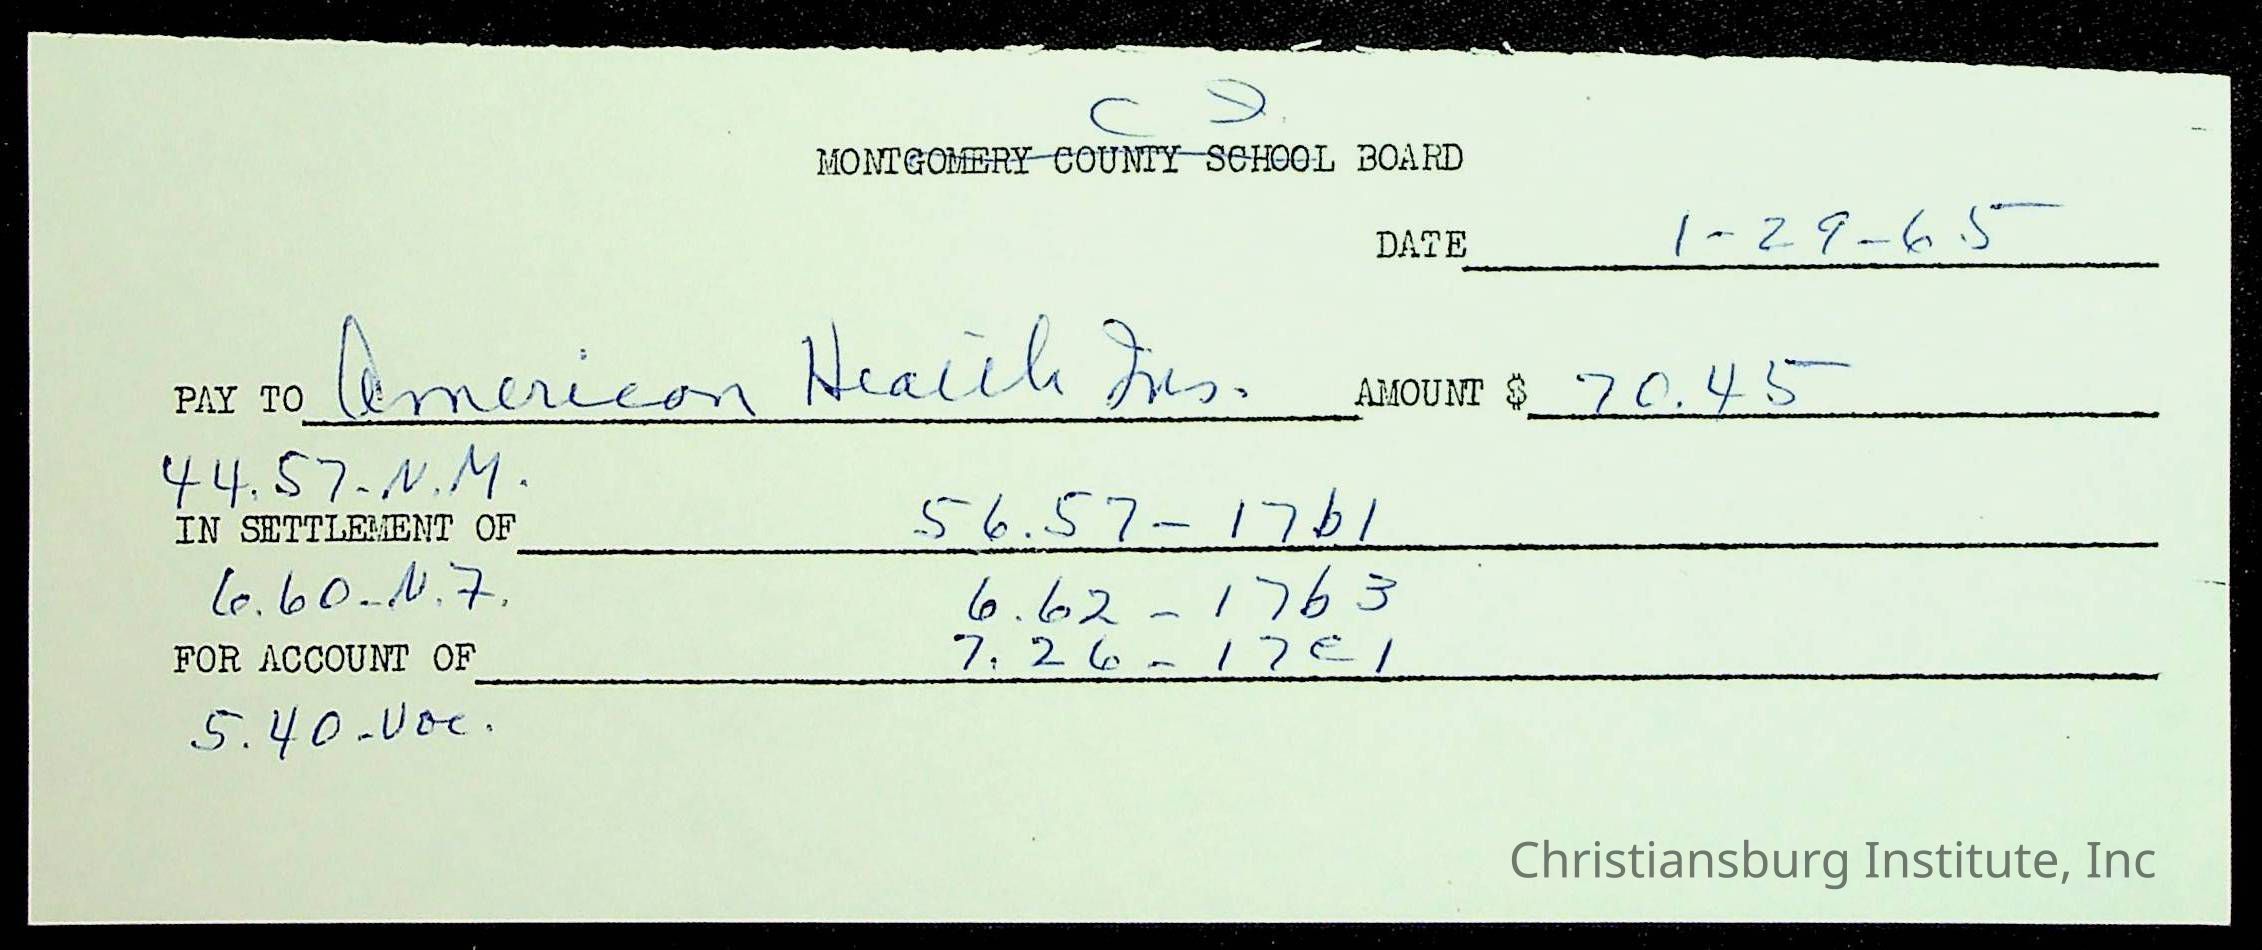 C D.
MONTGOMERY COUNTY SCHOOL BOARD
DATE 1-29-65
PAY TO American Health Ins. AMOUNT $ 70.45
44.57-N.M.
IN SETTLEMENT OF 56.57-17b1
6.60-N.F. 6.62-17b3
FOR ACCOUNT OF 7.26-17c1
5.40-Voc.
Christiansburg Institute, Inc